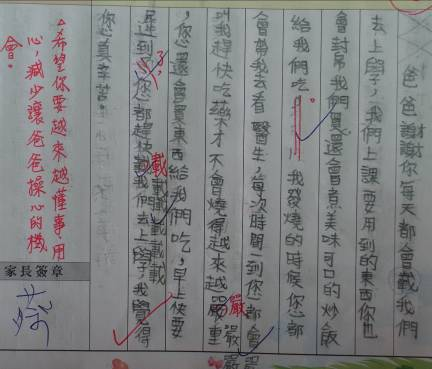 爸爸謝謝你每天都會載我們
去上學,我們上課要用到的東西你也
會幫我們買,還會煮美味可口的炒飯
給我們吃。我發燒的時候您都
會帶我去看醫生,每次時間一到您都會
叫我趕快吃藥才不會燒得越來越嚴重
,您還會買東西給我們吃,早上快要
遲到了,您都趕快載我們去上學,我覺得
您真辛苦。
載
載載載載載
嚴
嚴嚴嚴
△希望你要越來越懂事,用
心,減少讓爸爸操心的機
會。
家長簽章